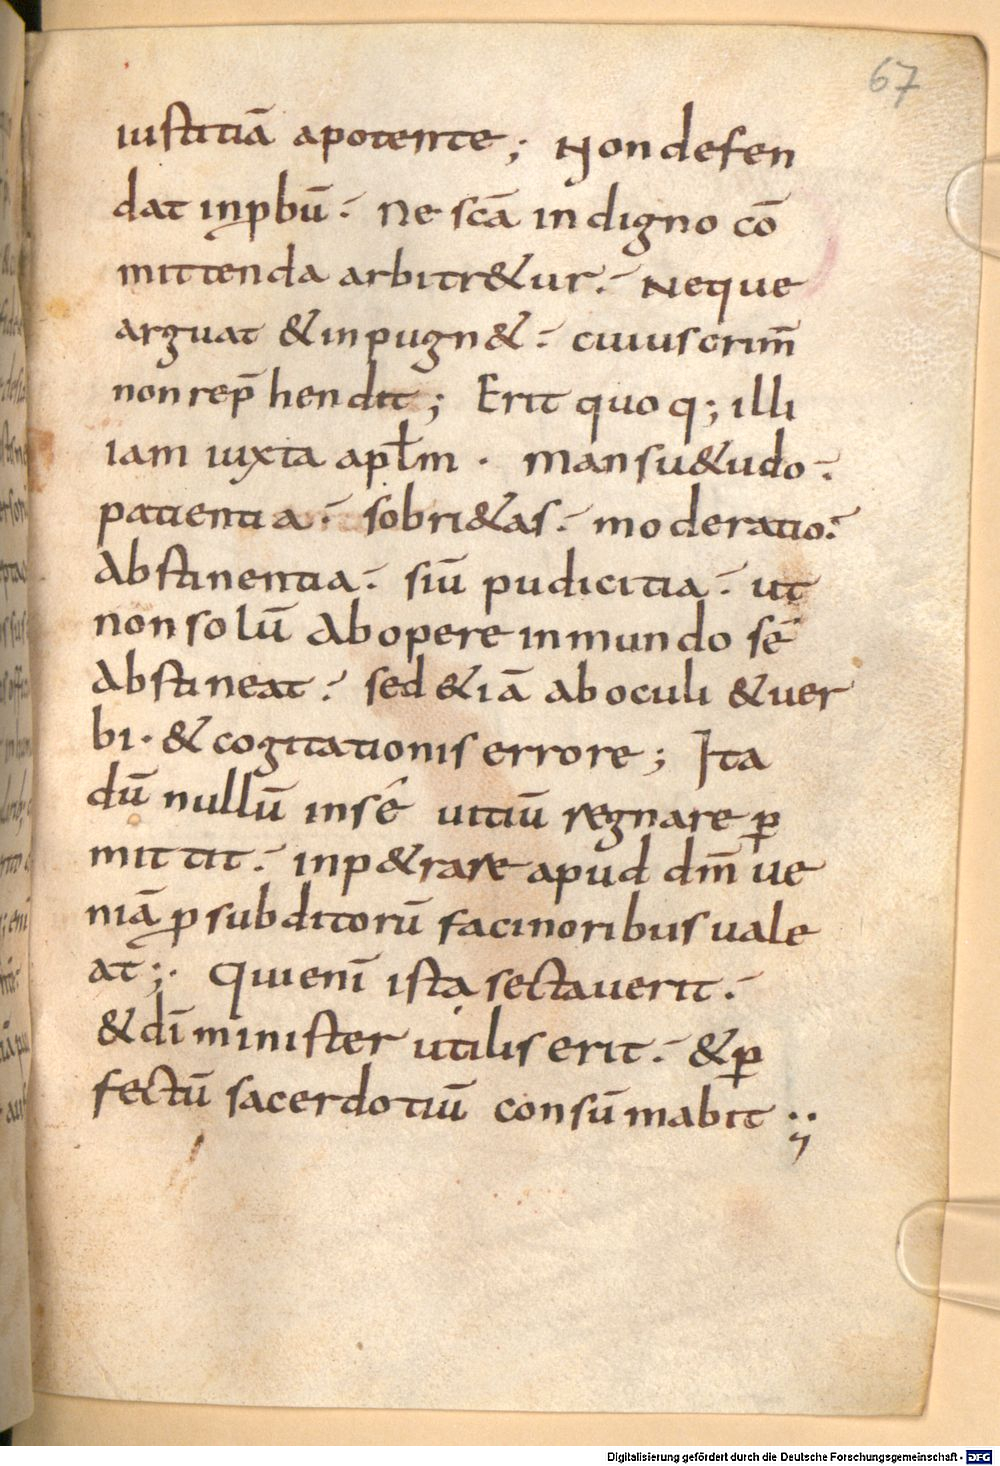 67
iustitiā apotente; Non defen
dat inꝓbū. Ne scā indigno cō
mittenda arbitr&ur. Neque
arguat & inpugn&. cuius crim̄
non rep̄hendit; Erit quoq; illi
iam iuxta apl̄m. mansu&udo.
patientia. sobri&as. moderatio.
Abstinentia. siū pudicitia. ut
non solū Ab opere inmundo sé
Abstineat. sed &iā ab oculi & ver
bi. & cogitationis errore; Ita
dū nullū insé uitiū regnare ꝑ
mittit. inp&rare apud dm̄ ue
niā ꝓ subditorū facinoribus uale
at;. Qui enī ista sectauerit.
& dī minister utilis erit. & ꝑ
fectū sacerdotiū consūmabit :,
Digitalisierung gefördert durch die Deutsche Forschungsgemeinschaft - DFG